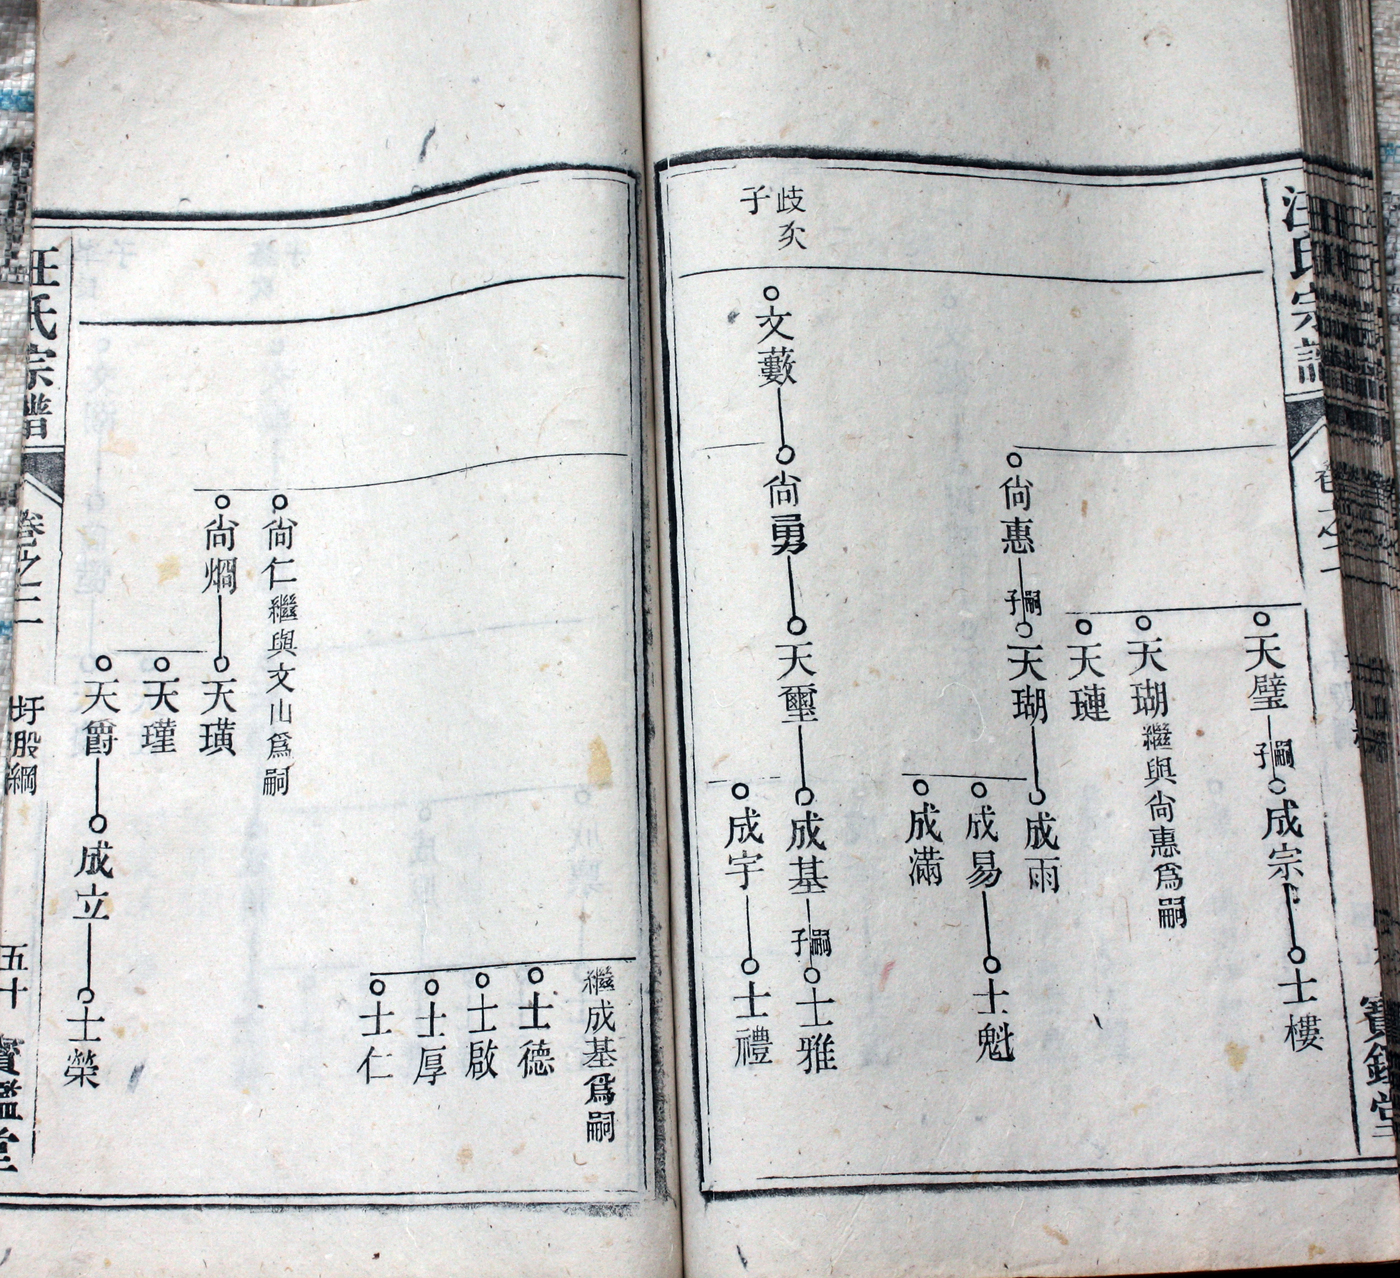 汪氏宗譜
卷之二
寶鑑堂
天璧
嗣子
成宗
士樓
天瑚繼與尙惠爲嗣
天璉
尙惠
嗣子
天瑚
成雨
成易
士魁
成滿
歧亥
子
文藪
尙勇
天璽
成基
嗣子
士雅
成宇
士禮
繼成基爲嗣
士德
士啟
士厚
士仁
尙仁繼與文山爲嗣
尙燗
天璜
天瑾
天爵
成立
士榮
汪氏宗譜
卷之二
圩股綱
五十
寶鑑堂